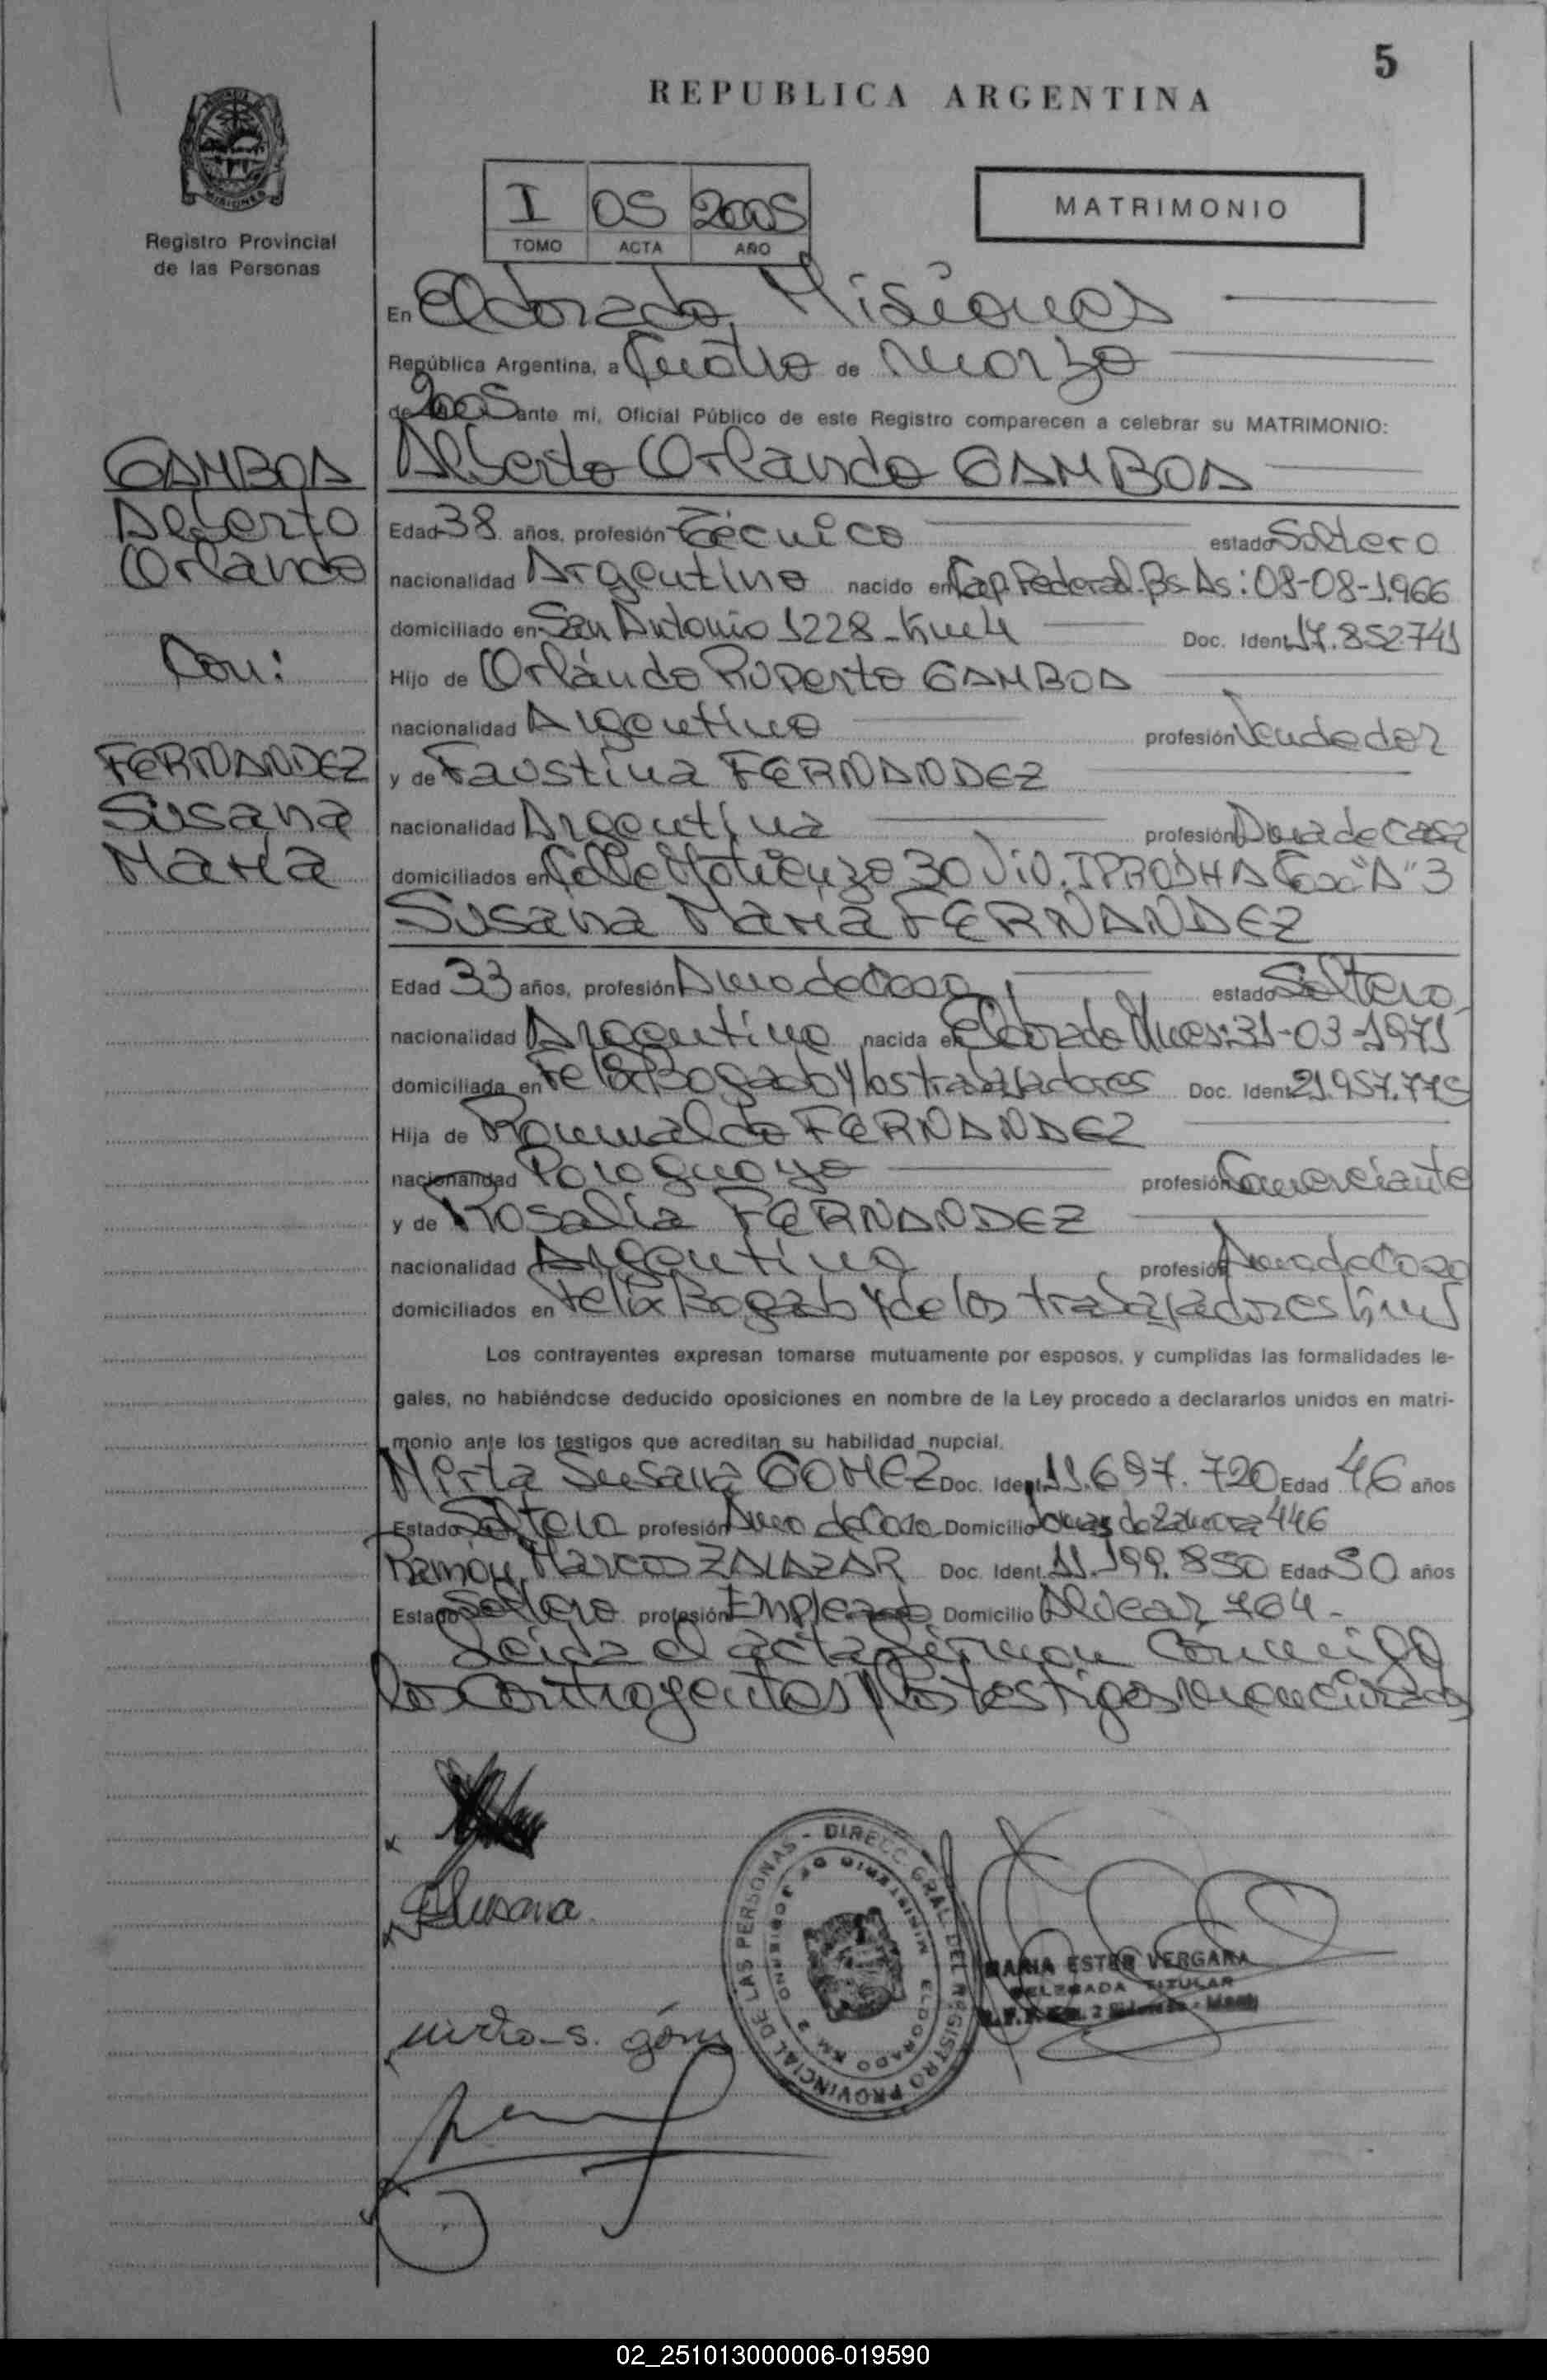 5
REPUBLICA ARGENTINA
MISIONES
Registro Provincial
de las Personas
I 05 2005
TOMO ACTA AÑO
MATRIMONIO
En Eldorado, Misiones
República Argentina, a Cuatro de Marzo
de 2005 ante mi, Oficial Público de este Registro comparecen a celebrar su MATRIMONIO:
GAMBOA
Alberto
Orlando
Con:
FERNANDEZ
Susana
María
Alberto Orlando GAMBOA
Edad 38 años, profesión Técnico estado Soltero
nacionalidad Argentino nacido en Cap. Federal-Bs-As: 08-08-1966
domiciliado en San Antonio 1228 - Doc. Ident. 17.852741
Hijo de Orlando Ruperto GAMBOA
nacionalidad Argentino profesión Vendedor
y de Faustina FERNANDEZ
nacionalidad Argentina profesión Ama de casa
domiciliados en Calle 30 Viv. IPRODHA Casa "A" 3
Susana María FERNANDEZ
Edad 33 años, profesión Ama de Casa estado Soltera
nacionalidad Argentina nacida en Eldorado Mnes: 31-03-1971
domiciliada en Felix Bogado y los trabajadores Doc. Ident.
Hija de Romualdo FERNANDEZ
nacionalidad Paraguayo profesión Comerciante
y de Rosalia FERNANDEZ
nacionalidad Argentina profesión Ama de Casa
domiciliados en Felix Bogado y de los trabajadores
Los contrayentes expresan tomarse mutuamente por esposos, y cumplidas las formalidades le-
gales, no habiéndose deducido oposiciones en nombre de la Ley procedo a declararlos unidos en matri-
monio ante los testigos que acreditan su habilidad nupcial.
Mirta Susana GOMEZ Doc. Ident. 11.697.720 Edad 46 años
Estado Soltera profesión Ama de Casa Domicilio 446
Ramon Marcos ZALAZAR Doc. Ident. 11.199.850 Edad 50 años
Estado Soltero profesión Empleado Domicilio Alvear 764-
Leida el acta firman conmigo
los contrayentes y los testigos mencionados
Susana
DIRECC. GRAL. DEL REGISTRO PROVINCIAL DE LAS PERSONAS -
MINISTERIO DE GOBIERNO
ELDORADO KM 2
MARIA ESTER VERGARA
DELEGADA TITULAR
mirta s.
02_251013000006-019590